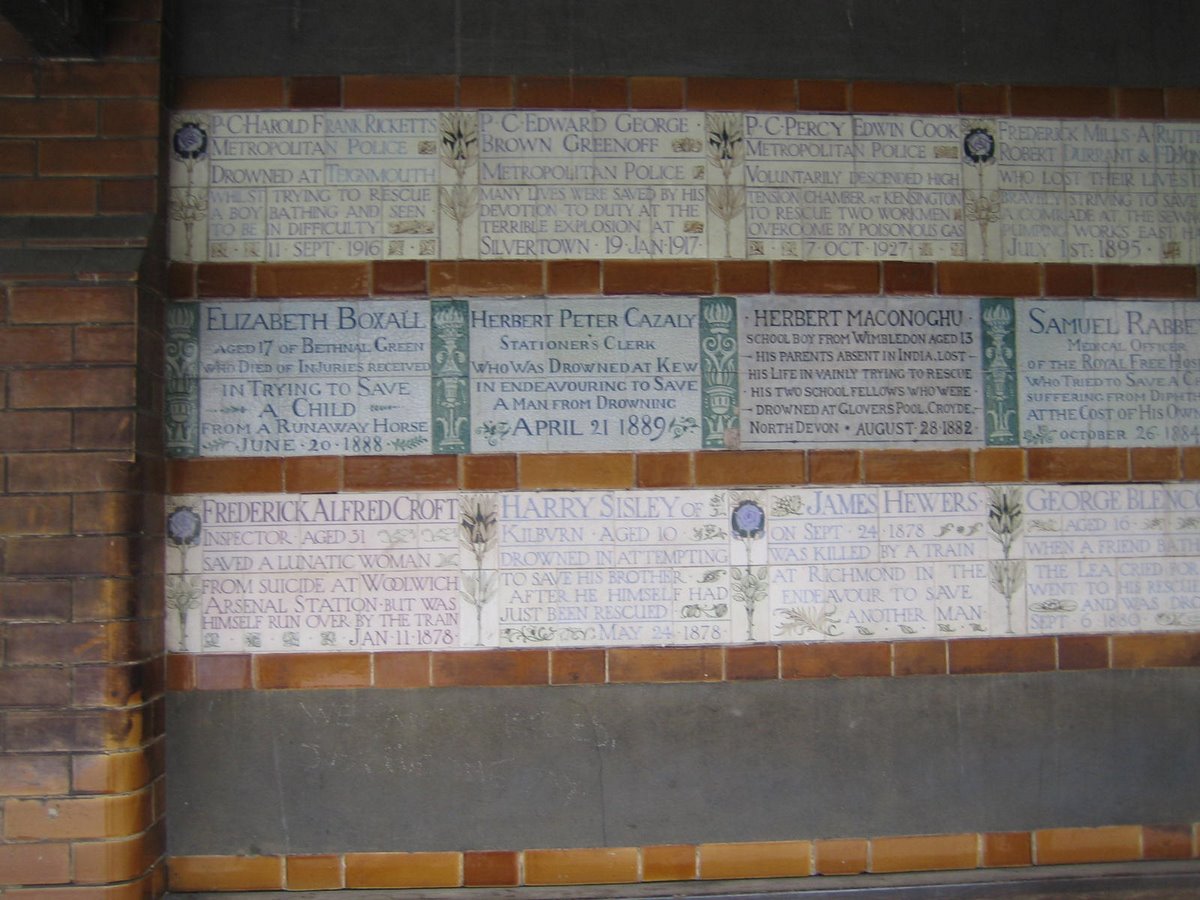 P·C·HAROLD FRANK RICKETTS
METROPOLITAN POLICE
DROWNED AT TEIGNMOUTH
WHILST TRYING TO RESCUE
A BOY BATHING AND SEEN
TO BE IN DIFFICULTY
11 SEPT 1916
P·C·EDWARD GEORGE
BROWN GREENOFF
METROPOLITAN POLICE
MANY LIVES WERE SAVED BY HIS
DEVOTION TO DUTY AT THE
TERRIBLE EXPLOSION AT
SILVERTOWN · 19 JAN·1917
P·C·PERCY EDWIN COOK
METROPOLITAN POLICE
VOLUNTARILY DESCENDED HIGH
TENSION CHAMBER AT KENSINGTON
TO RESCUE TWO WORKMEN
OVERCOME BY POISONOUS GAS
7 OCT 1927
FREDERICK MILLS · A RUTT
ROBERT DURRANT & F·D·JON
WHO LOST THEIR LIVES
BRAVELY STRIVING TO SAVE
A COMRADE AT THE SEWA
PUMPING WORKS EAST H
JULY 1ST: 1895
ELIZABETH BOXALL
AGED 17 OF BETHNAL GREEN
WHO DIED OF INJURIES RECEIVED
IN TRYING TO SAVE
A CHILD
FROM A RUNAWAY HORSE
JUNE · 20 · 1888
HERBERT PETER CAZALY
STATIONER'S CLERK
WHO WAS DROWNED AT KEW
IN ENDEAVOURING TO SAVE
A MAN FROM DROWNING
APRIL 21 1889
HERBERT MACONOGHU
SCHOOL BOY FROM WIMBLEDON AGED 13
HIS PARENTS ABSENT IN INDIA, LOST
HIS LIFE IN VAINLY TRYING TO RESCUE
HIS TWO SCHOOL FELLOWS WHO WERE
DROWNED AT GLOVERS POOL, CROYDE,
NORTH DEVON · AUGUST·28·1882
SAMUEL RABBE
MEDICAL OFFICER
OF THE ROYAL FREE HOS
WHO TRIED TO SAVE A C
SUFFERING FROM DIPHT
AT THE COST OF HIS OW
OCTOBER 26·1884
FREDERICK ALFRED CROFT
INSPECTOR · AGED 31
SAVED A LUNATIC WOMAN
FROM SUICIDE AT WOOLWICH
ARSENAL STATION·BUT WAS
HIMSELF RUN OVER BY THE TRAIN
JAN·11·1878·
HARRY SISLEY OF
KILBVRN · AGED 10
DROWNED IN ATTEMPTING
TO SAVE HIS BROTHER·
AFTER HE HIMSELF HAD
JUST BEEN RESCUED
MAY 24·1878·
JAMES HEWERS·
ON SEPT · 24 · 1878
WAS KILLED BY A TRAIN
AT RICHMOND IN THE
ENDEAVOUR TO SAVE
ANOTHER MAN·
GEORGE BLENC
AGED 16
WHEN A FRIEND BATH
THE LEA CRIED FOR
WENT TO HIS RESCU
AND WAS DR
SEPT · 6 · 1880